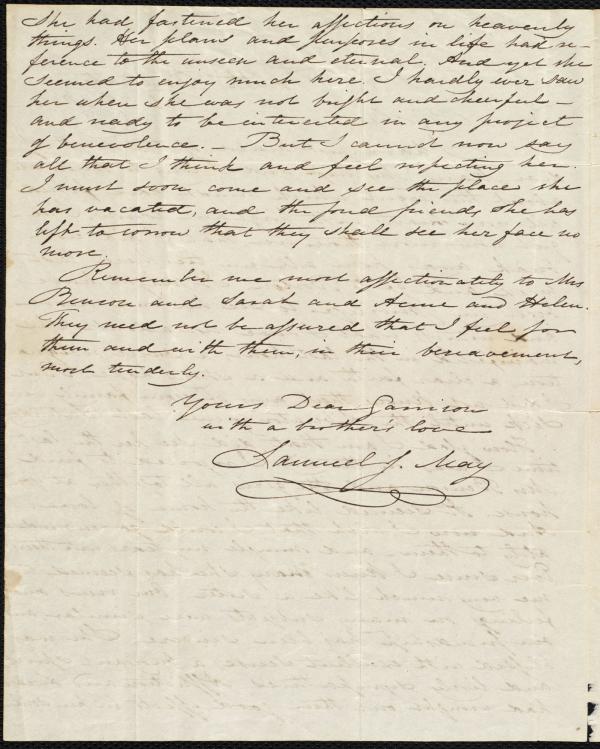 She had fastened her affections on heavenly
things. Her plans and purposes in life had re-
ference to the unseen and eternal. And yet she
seemed to enjoy much here. I hardly ever saw
her when she was not bright and cheerful –
and ready to be interested in any project
of benevolence. – But I cannot now say
all that I think and feel respecting her.
I must soon come and see the place she
has vacated, and the fond friends she has
left to sorrow that they shall see her face no
more.
Remember me most affectionately to Mrs
Benson and Sarah and Anne and Helen.
They need not be assured that I feel for
them and with them, in their bereavement,
most tenderly.
Yours Dear Garrison
with a brother's love
Samuel J. May